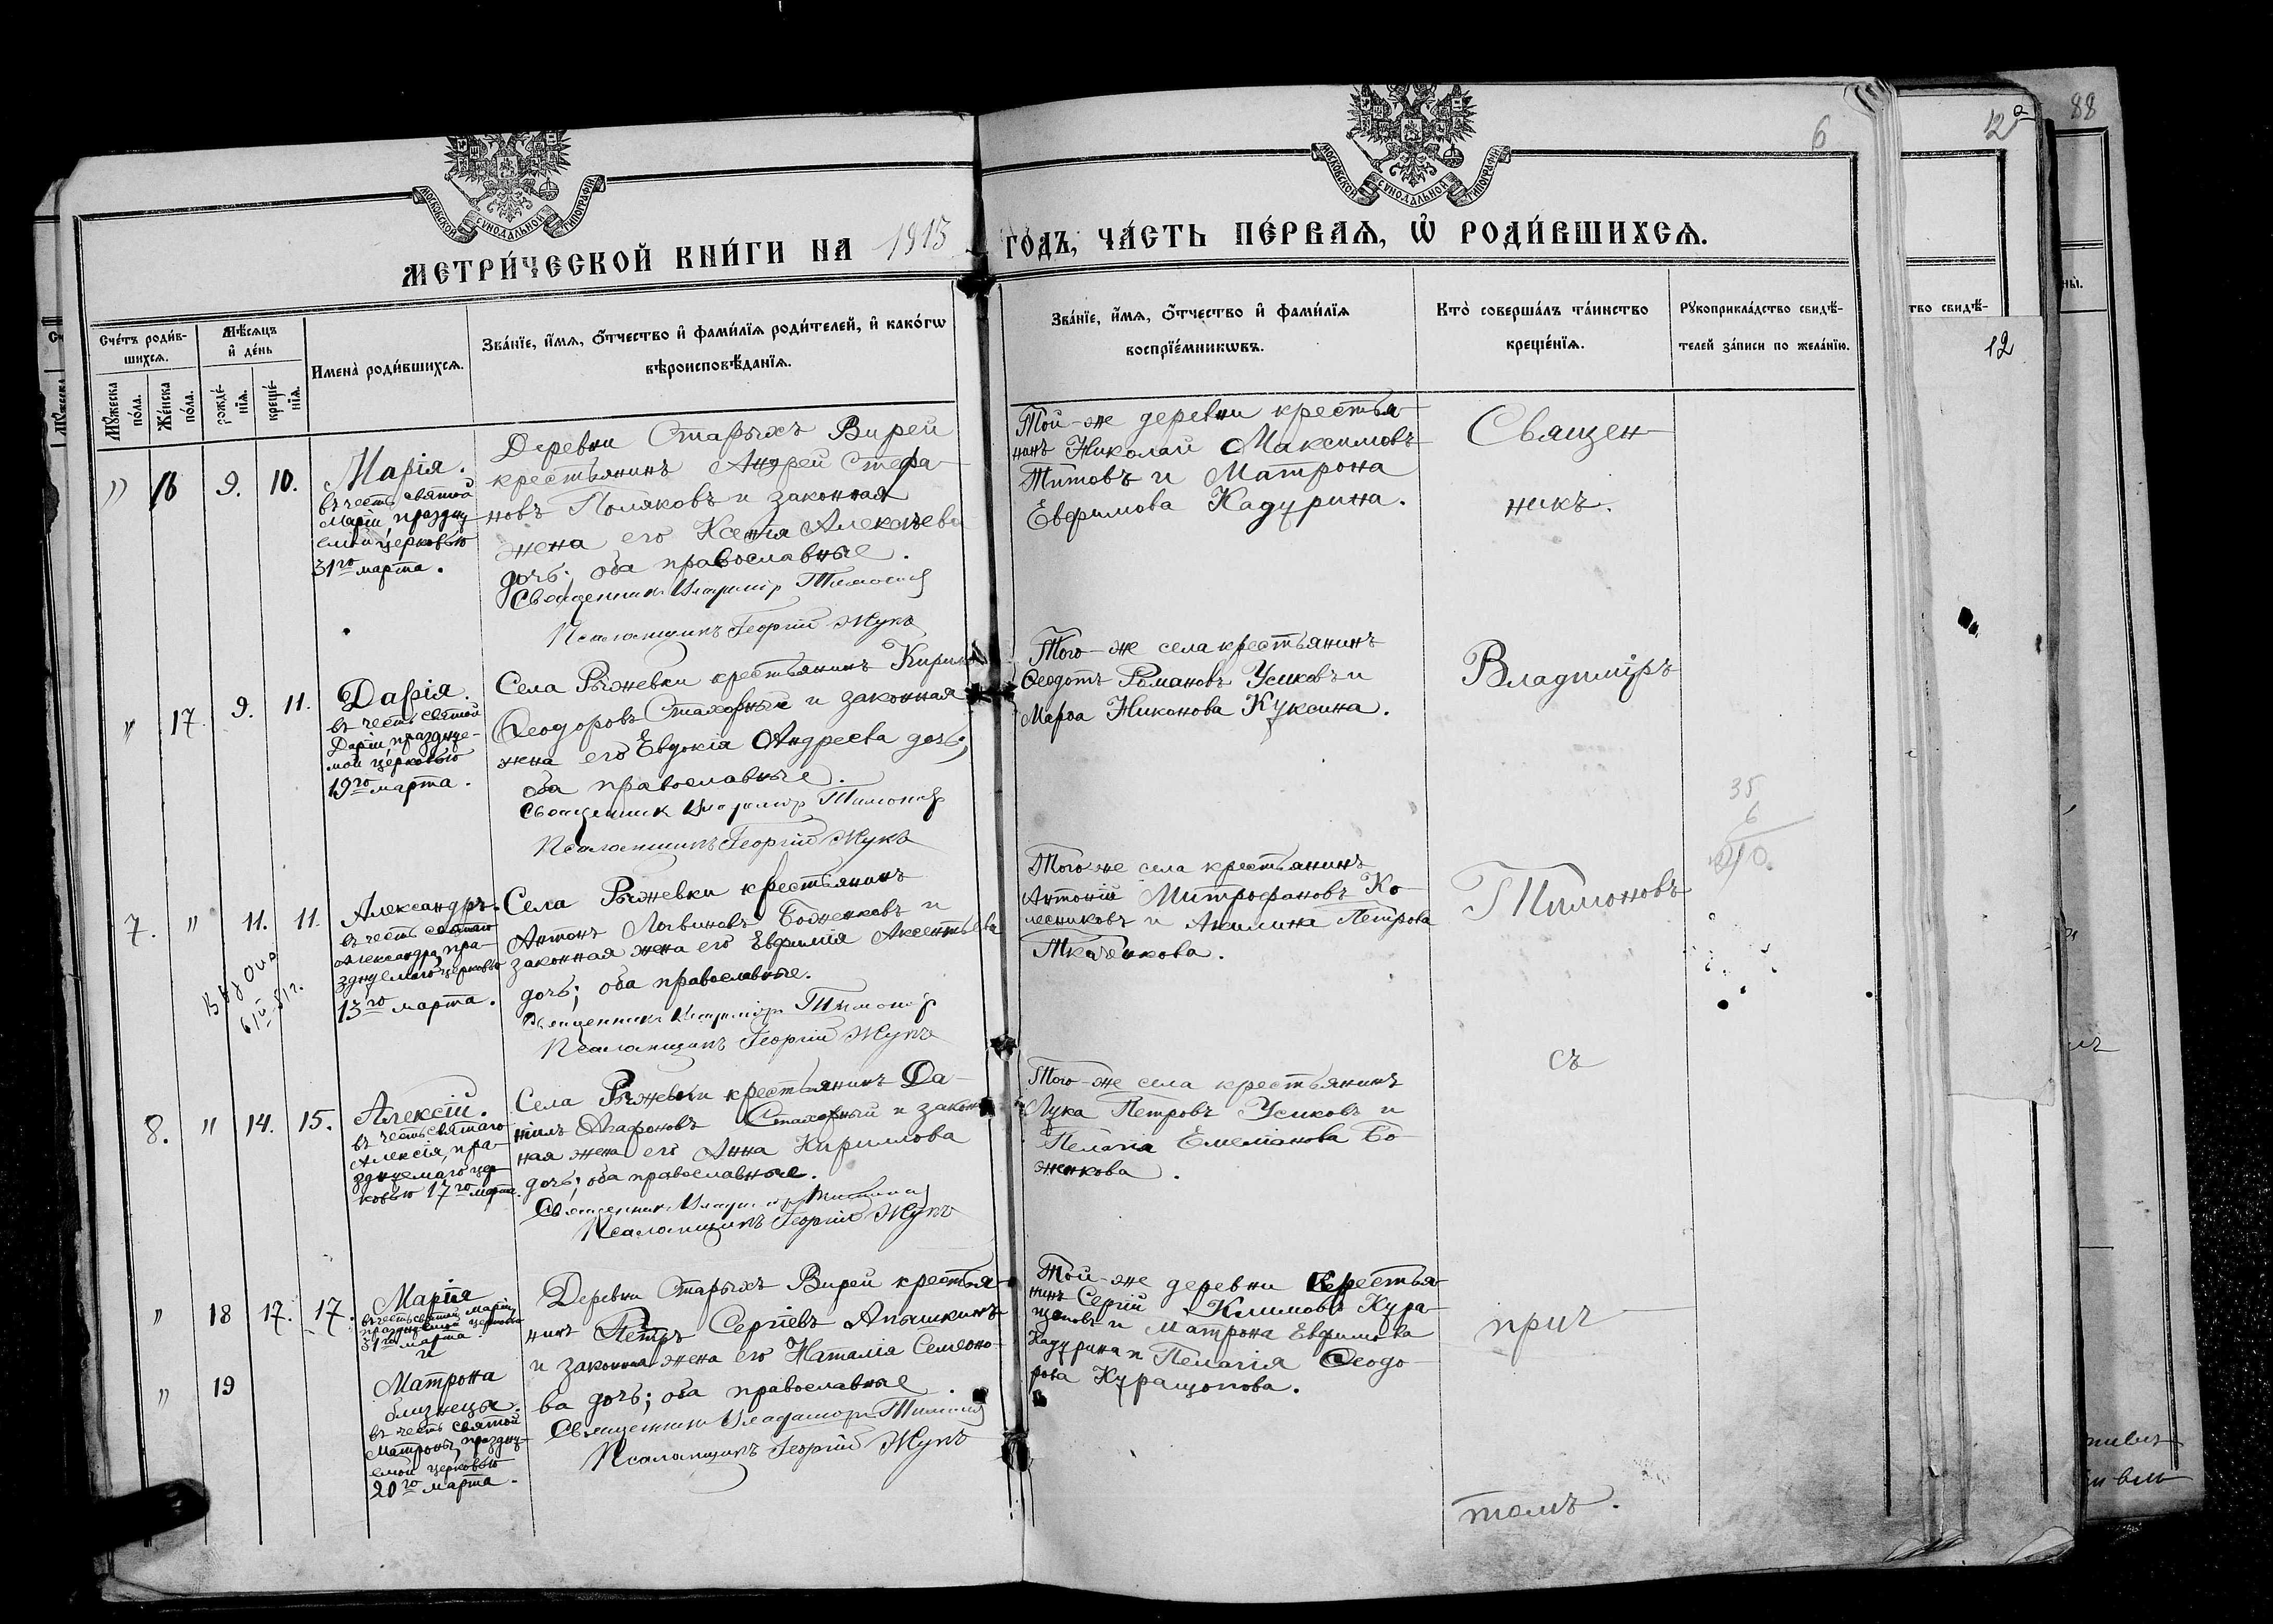 88
12а
6
МОСКОВСКОЙ СѴНОДАЛЬНОЙ ТИПОГРАФІИ
МОСКОВСКОЙ СѴНОДАЛЬНОЙ ТИПОГРАФІИ
МЕТРИ́ЧЕСКОЙ КНИ́ГИ НА 1915 ГОДЪ, ЧА́СТЬ ПЕ́РВАЯ, Ѡ҆ РОДИ́ВШИХСЯ.
Сче́тъ роди́в-
шихся.
Мѣ́сяцъ
и҆ де́нь
Мꙋ́жеска
по́ла.
Же́нска
по́ла.
рожде́-
нїя.
креще́-
нїя.
Имена̀ роди́вшихся.
Зва́нїе, и҆́мя, ѻ҆́тчество и҆ фами́лїя роди́телей, и҆ како́гѡ
вѣроисповѣ́данїя.
Зва́нїе, и҆́мя, ѻ҆́тчество и҆ фами́лїя
воспрїе́мникѡвъ.
Кто̀ соверша́лъ та́инство
креще́нїя.
Рꙋкоприкла́дство свидѣ́-
телей за́писи по жела́нїю.
тво свидѣ́-
12
" 16 9. 10.
Марія.
въ честь святой
Маріи, праздну
емой церковью
31го марта.
Деревни Старыхъ Вирей
крестьянинъ Андрей Стефа-
новъ Поляковъ и законная
жена его Ксенія Алексѣева
дочь; оба православные.
Священникъ Владимір Тимонов
Псаломщикъ Георгій Жукъ
Той-же деревни крестья-
нинъ Николай Максимовъ
Титовъ и Матрона
Евфимова Кадурина.
Священ-
никъ.
" 17. 9. 11.
Дарія.
въ честь святой
Даріи, праздчуе-
мой церковью
19го марта.
Села Рыжевки крестьянинъ Кирилъ
Ѳеодоровъ Стахорный и законная
жена его Евдокія Андреева дочь;
оба православные.
Священник Владимір Тимонов
Псаломщикъ Георгій Жукъ
Того-же села крестьянинъ
Ѳеодотъ Романовъ Усиковъ и
Марѳа Никонова Куксина.
Владиміръ
35
6
7. " 11. 11.
Александръ.
въ честь святаго
Александра, пра-
зднуемаго церковью
13го марта.
Села Рыжевки крестьянинъ
Антонъ Логвиновъ Боженковъ и
законная жена его Евфимія Аксентьева
дочь; оба православные.
Священникъ Владимір Тимонов
Псаломщикъ Георгій Жукъ
Того-же села крестьянинъ
Антоній Митрофановъ Ко-
лесниковъ и Акилина Петрова
Ткаченкова.
Тимоновъ
съ
8. " 14. 15.
Алексій.
въ честь святаго
Алексія, пра-
зднуемаго цер-
ковью 17го марта.
Села Рыжевки крестьянинъ Да-
ніилъ Агафоновъ Стахорный и закон-
ная жена его Анна Кириллова
дочь; оба православные.
Священникъ Владимір Тимонов
Псаломщикъ Георгій Жукъ
Того-же села крестьянинъ
Лука Петровъ Усиковъ и
Пелагія Емеліанова Бо-
женкова.
" 18 17. 17.
Марія
въ честь святой Маріи,
празднуемой церковью
31го марта
и
" 19
Матрона
близнецы.
въ честь святой
Матроны, праздну-
емой церковью
20го марта.
Деревни Старыхъ Вирей крестья-
нинъ Петръ Сергіевъ Апышкинъ
и законная жена его Наталія Семеоно-
ва дочь; оба православные.
Священникъ Владимір Тимонов
Псаломщикъ Георгій Жукъ
Той-же деревни крестья-
нинъ Сергій Климовъ Кура-
щоповъ и Матрона Евфимова
Кадурина и Пелагія Ѳеодо-
рова Куращопова.
прич-
томъ.